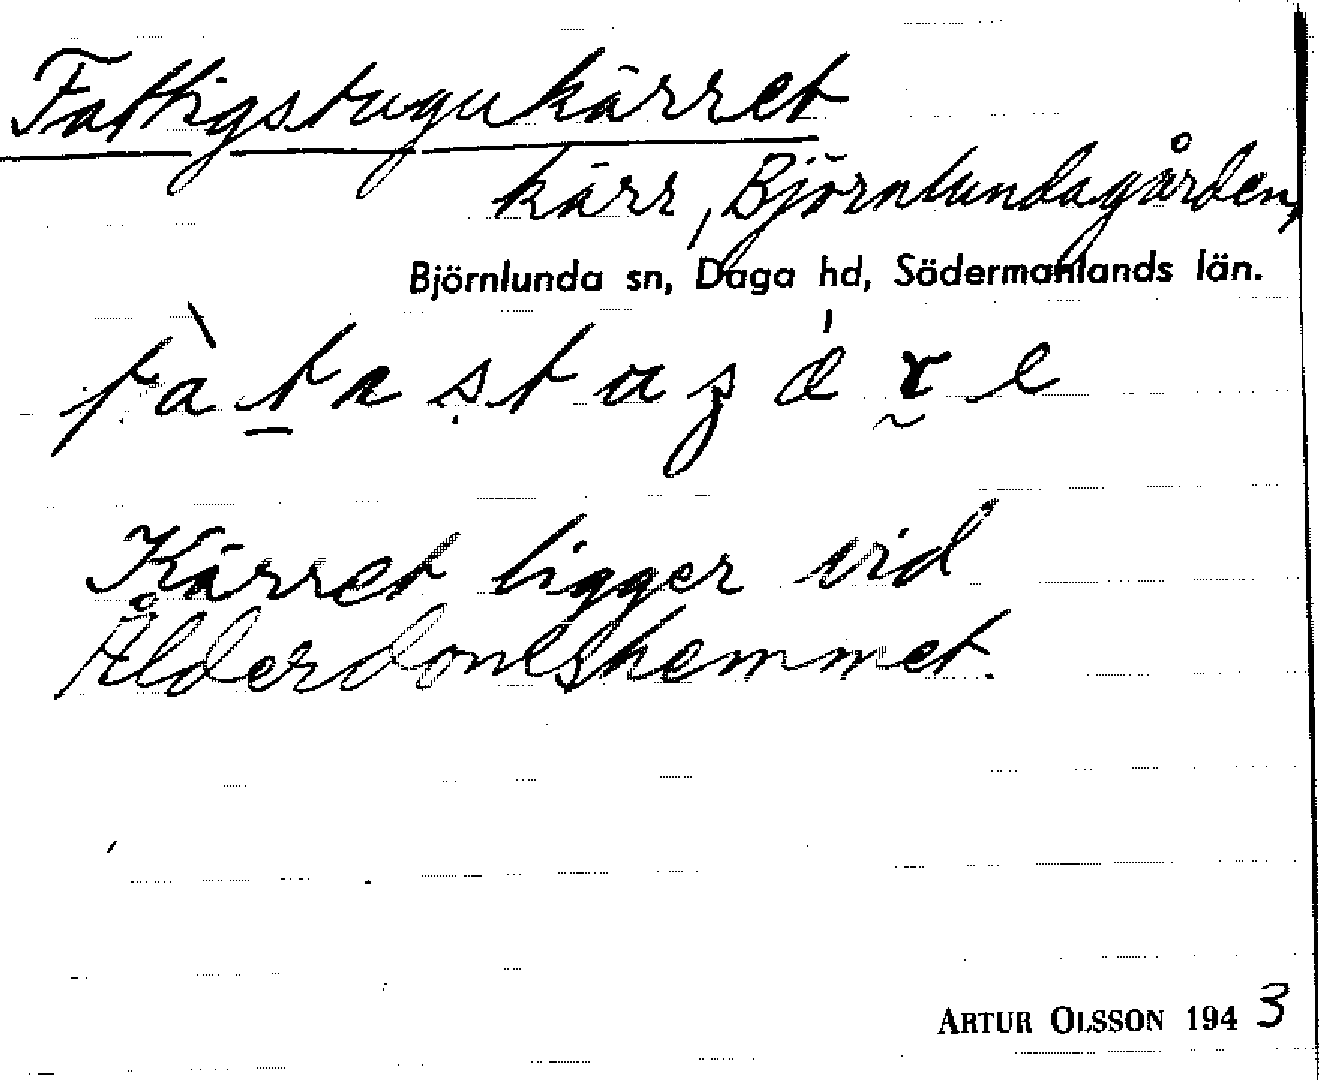 Fattigstugukärret
kärr, Björnlundagården,
Björnlunda sn, Daga hd, Södermanlands län.
Kärret ligger vid
Ålderdomshemmet.
ARTUR OLSSON 1943